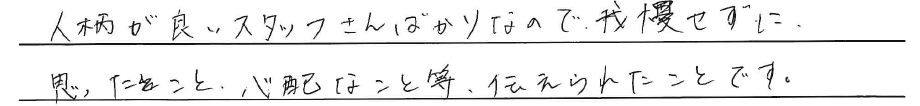 人柄が良いスタッフさんばかりなので、我慢せずに、
思ったこと、心配なこと等、伝えられたことです。